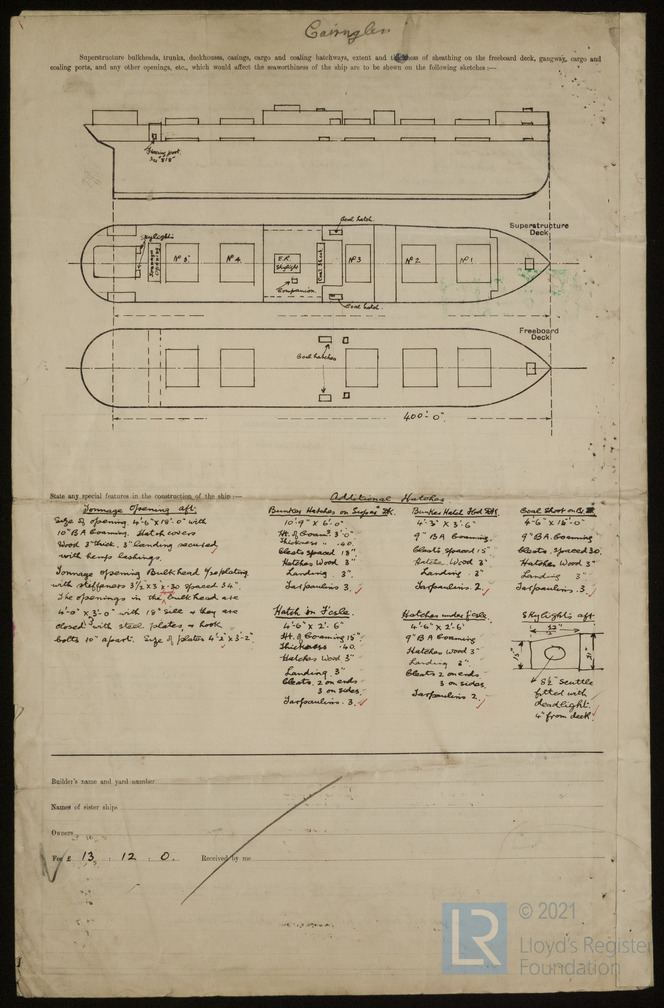 Cairnglen
Superstructure bulkheads, trunks, deckhouses, casings, cargo and coaling hatchways, extent and thickness of sheathing on the freeboard deck, gangway, cargo and
coaling ports, and any other openings, etc., which would affect the seaworthiness of the ship are to be shewn on the following sketches :—
Coal hatch.
Superstructure
Deck
Skylights
Tonnage
Opening
No 5
No 4
E.R.
Skylight
Companion
Coal Shoot
No 3
No 2
No 1
Coal hatch.
Freeboard
Deck
Coal hatches
400'-0"
State any special features in the construction of the ship :—
Additional Hatches
Tonnage Opening aft.
Size of opening 4'-6" x 18'-0" with
10" BA Coaming. Hatch covers
Wood 3" thick. 3" landing secured
with hemp lashings.
Tonnage opening Bulkhead
with stiffeners 3½ x 3 x .30 spaced 34".
The openings in the bulkhead are
4'-0" x 3'-0" with 18" sill & they are
closed with steel plates & hook
bolts 10" apart. Size of plates 4'-2" x 3'-2"
Bunker Hatches on Supers. Dk.
10'-9" x 6'-0"
Ht. of Coam. 3'-0"
Thickness .40
Cleats spaced 18"
Hatches Wood 3"
Landing 3".
Tarpaulins 3.
Hatch in F'csle.
4'-6" x 2'-6"
Ht. of Coaming 15"
Thickness .40.
Hatches Wood 3"
Landing 3"
Cleats 2 on ends
3 on sides.
Tarpaulins. 3.
Bunker Hatch Fbd Dk.
4'-3" x 3'-6"
9" BA Coaming.
Cleats spaced 15"
Hatches Wood 3"
Landing 3"
Tarpaulins 2.
Hatches under F'csle.
4'-6" x 2'-6"
9" BA Coaming
Hatches Wood 3"
Landing 3".
Cleats 2 on ends
3 on sides.
Tarpaulins 2.
Coal Shoot on
4'-6" x 16'-0"
9" BA Coaming
Cleats spaced 30.
Hatches Wood 3"
Landing 3"
Tarpaulins 3.
Skylights aft.
15"
21"
8½" Scuttle
fitted with
deadlight.
4" from deck.
Builder's name and yard number
Names of sister ships
Owners
Fee £ 13 : 12 : 0. Received by me
© 2021
LR
Lloyd's Register
Foundation